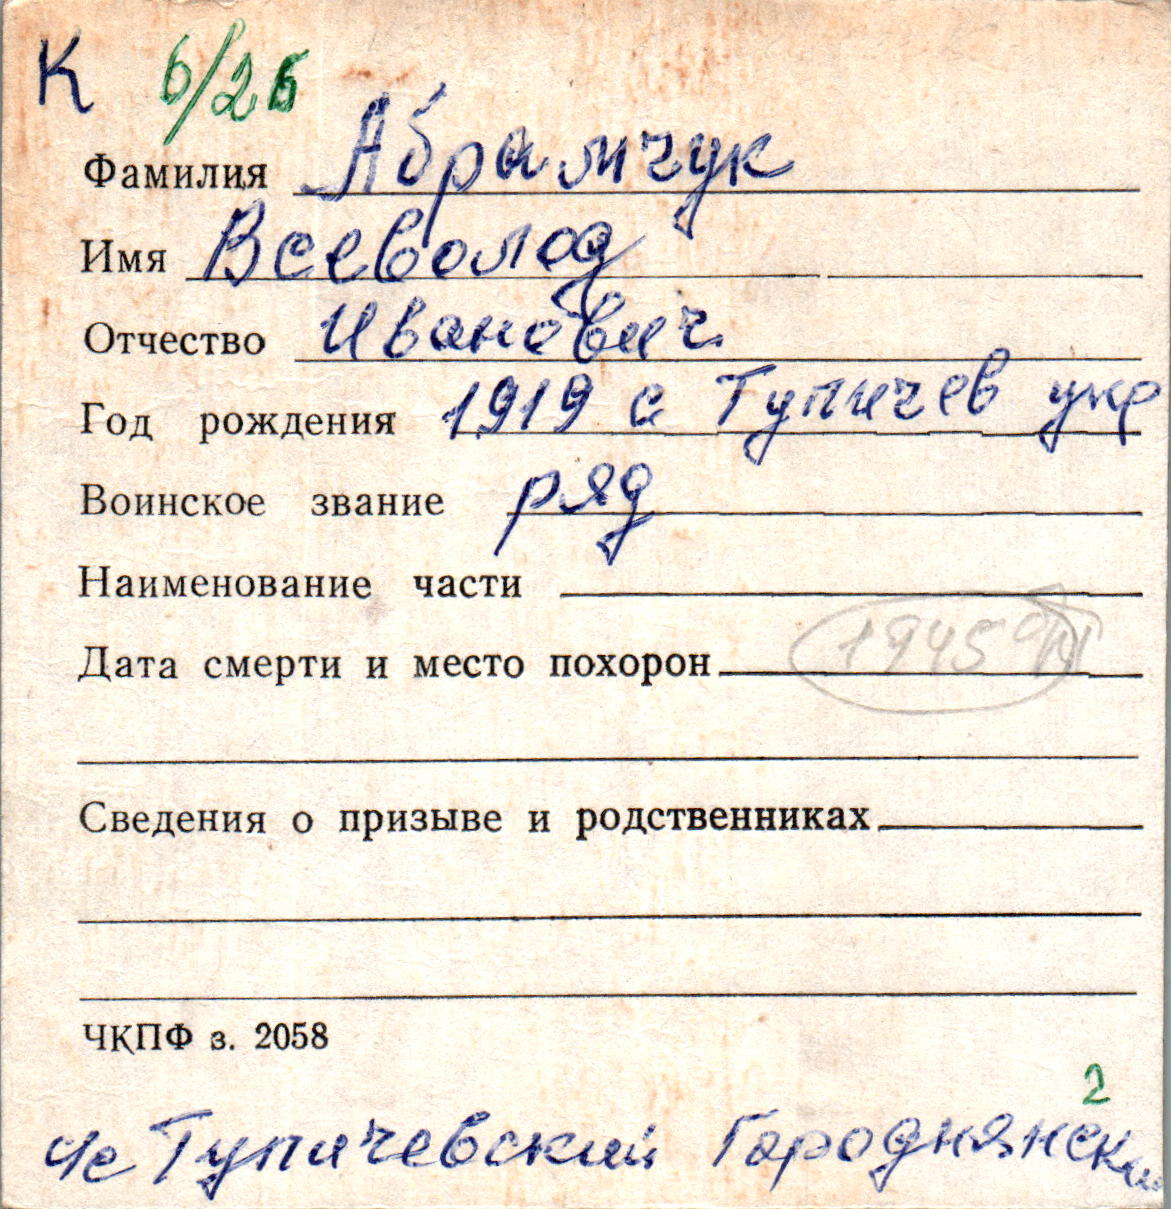 К 6/26
Фамилия Абрамчук
Имя Всеволод
Отчество Иванович
Год рождения 1919 с Тупичев укр
Воинское звание ряд
Наименование части
Дата смерти и место похорон 1945
Сведения о призыве и родственниках
ЧКПФ з. 2058
2
Тупичевский Городнянский